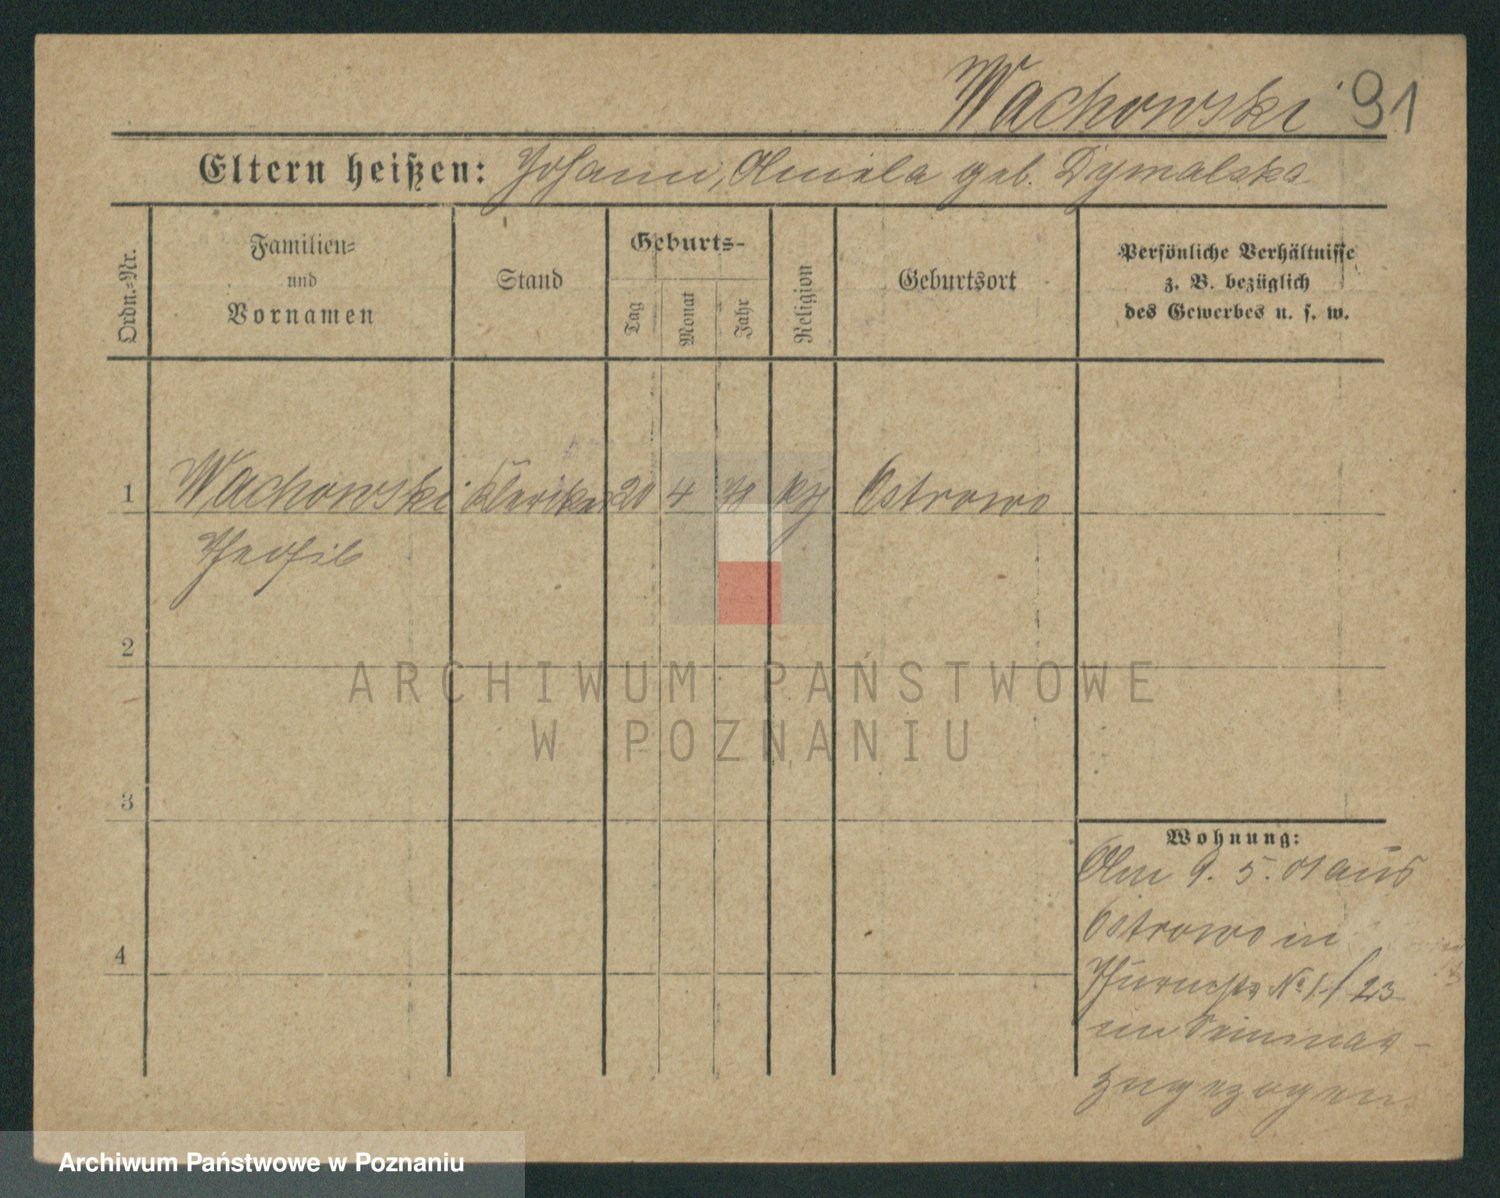 Wachowski 91
Eltern heißen: Johann, Amela geb. Dymalska
Ordn.-Nr.
Familien-
und
Vornamen
Stand
Geburts-
Tag
Monat
Jahr
Religion
Geburtsort
Persönliche Verhältnisse
z. B. bezüglich
des Gewerbes u. s. w.
1 Wachowski Kleriker 20 4 Ostrowo
Theofil
2
ARCHIWUM PAŃSTWOWE
W POZNANIU
3
Wohnung:
Am 9. 5. 01 aus
Ostrowo in
4
No 1/23
im Seminar
zugezogen
Archiwum Państwowe w Poznaniu